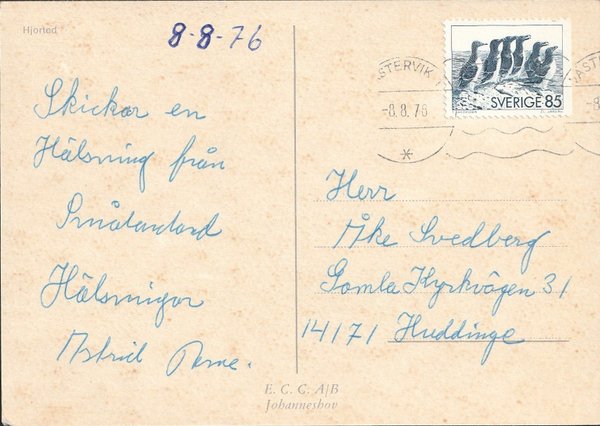 Hjorted
8-8-76
Skickar en
Hälsning från
Småland
Hälsningar
Astrid
VÄSTERVIK
-8.8.76
SVERIGE 85
Herr
Åke Svedberg
Gamla Kyrkvägen 31
14171 Huddinge
E. C. C. A/B
Johanneshov